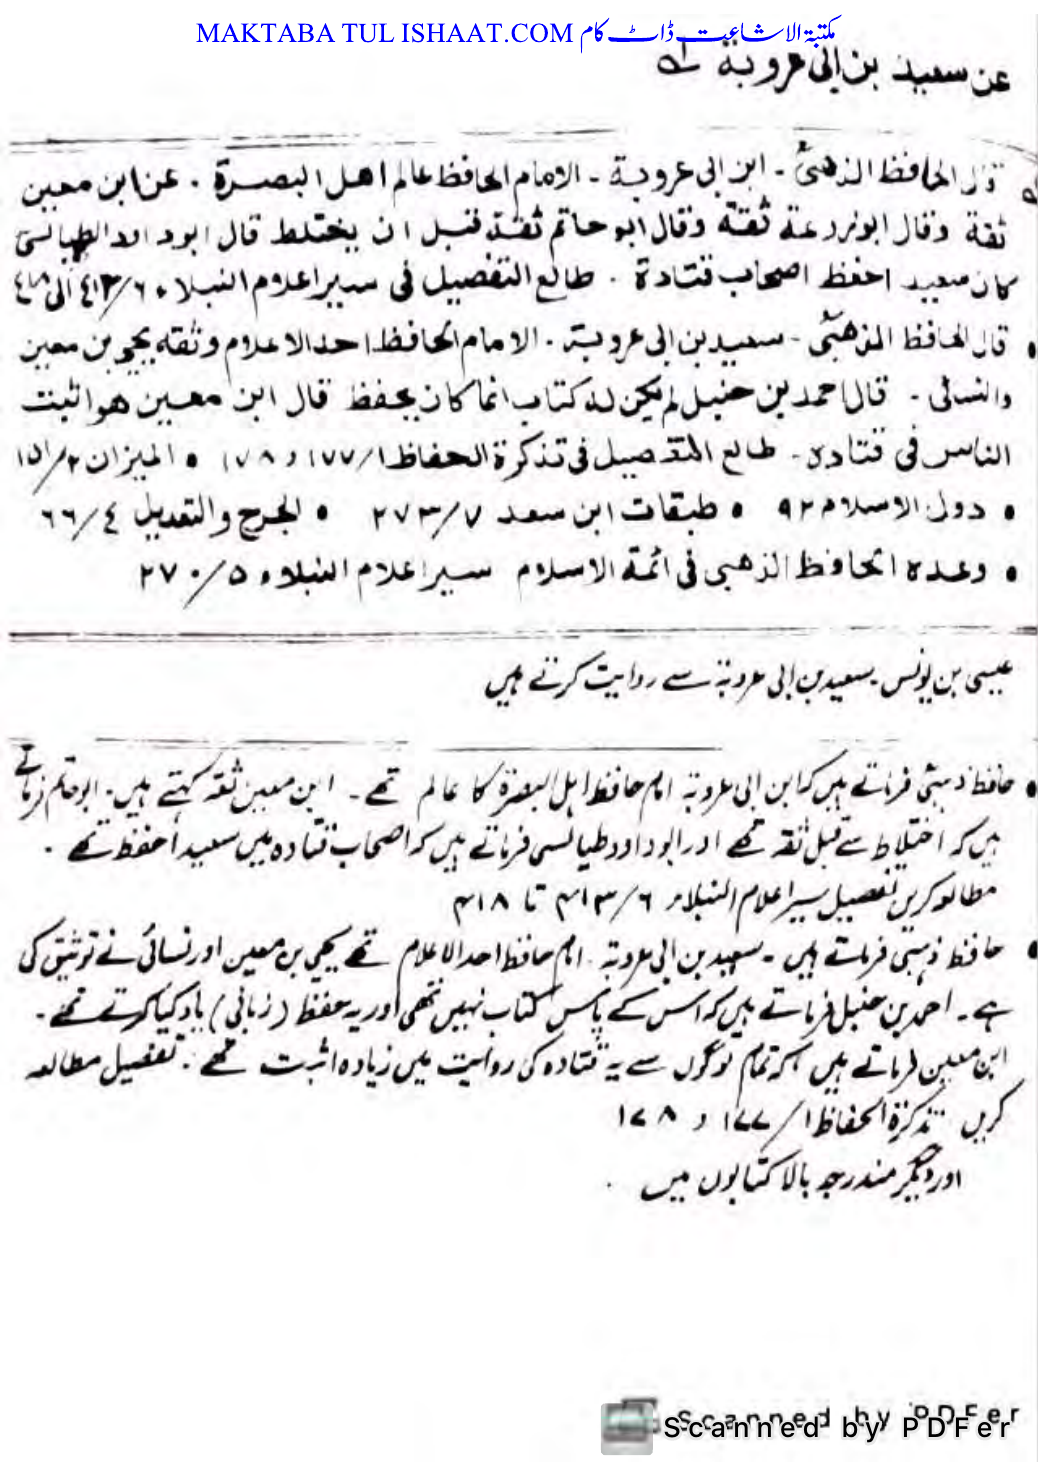 MAKTABA TUL ISHAAT.COM مکتبۃ الاشاعت ڈاٹ کام
عن سعید بن ابی عروبة لہ
لہ قال الحافظ الذھبیؒ - ابن ابی عروبة - الامام الحافظ عالم اھل البصرة . عن ابن معین
ثقة وقال ابوزرعة ثقة وقال ابو حاتم ثقة قبل ان یختلط قال ابوداؤد الطیالسی
کان سعید احفظ اصحاب قتادة . طالع التفصیل فی سیر اعلام النبلاء ٦/٤١٣ الی ٤١٨
• قال الحافظ الذھبیؒ - سعید بن ابی عروبة . الامام الحافظ احد الاعلام وثقه یحیی بن معین
والنسائی - قال احمد بن حنبل لم یکن له کتاب انما کان یحفظ قال ابن معین هو اثبت
الناس فی قتادہ - طالع التفصیل فی تذکرة الحفاظ ۱/۱۷۷ و ۱۷۸ • المیزان ۲/۱۵۱
• دول الاسلام ۹۲ • طبقات ابن سعد ۷/۲۷۳ • الجرح والتعدیل ٤/٦٦
• وعده الحافظ الذھبی فی ائمة الاسلام سیر اعلام النبلاء ۵/۲۷۰
عیسی بن یونس - سعید بن ابی عروبة سے روایت کرتے ہیں
• حافظ ذہبیؒ فرماتے ہیں کہ ابن ابی عروبة امام حافظ اہل البصرة کا عالم تھے - ابن معین ثقہ کہتے ہیں - ابو حاتم فرماتے
ہیں کہ اختلاط سے قبل ثقہ تھے اور ابوداود طیالسی فرماتے ہیں کہ اصحاب قتادہ میں سعید احفظ تھے .
مطالعہ کریں تفصیل سیر اعلام النبلاء ۶/۴۱۳ تا ۴۱۸
• حافظ ذہبیؒ فرماتے ہیں - سعید بن ابی عروبة . امام حافظ احد الاعلام تھے یحیی بن معین اور نسائی نے توثیق کی
ہے - احمد بن حنبل فرماتے ہیں کہ اس کے پاس کتاب نہیں تھی اور یہ حفظ (زبانی) یاد کیا کرتے تھے -
ابن معین فرماتے ہیں کہ تمام لوگوں سے یہ قتادہ کی روایت میں زیادہ اثبت تھے . تفصیل مطالعہ
کریں تذکرة الحفاظ ۱/۱۷۷ و ۱۷۸
اور دیگر مندرجہ بالا کتابوں میں .
Scanned by PDFer